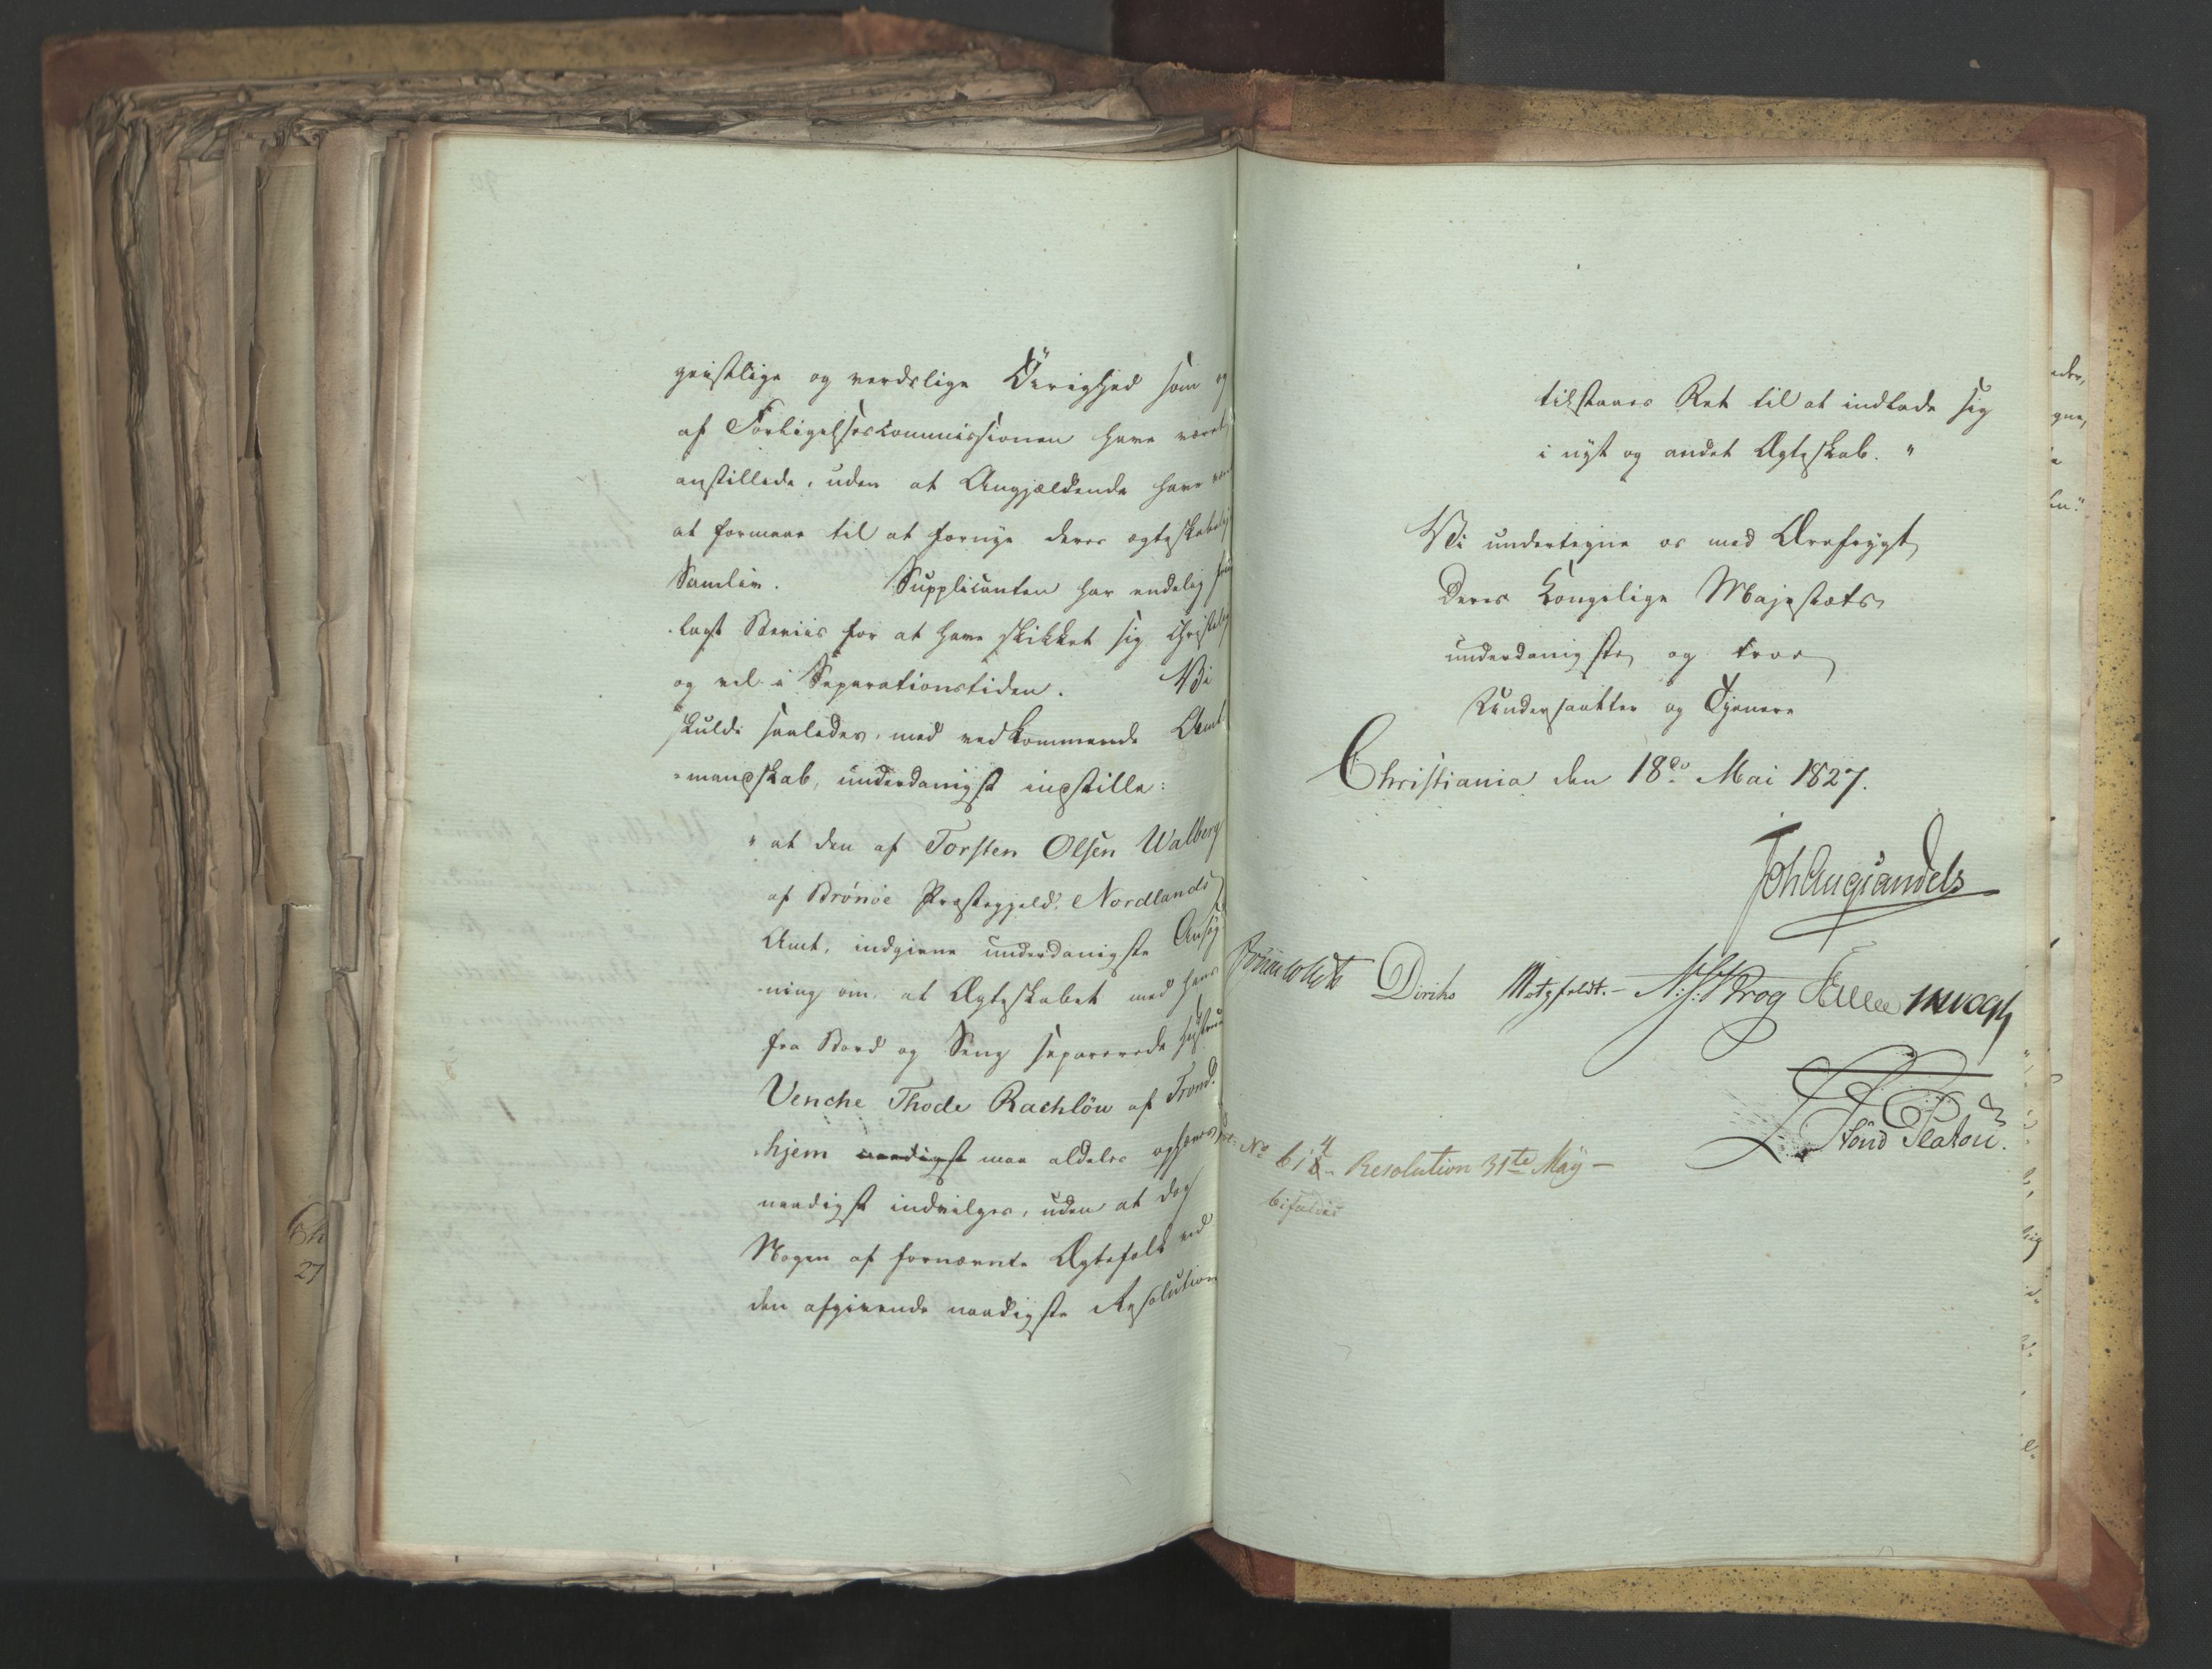 geistlige og verdslige Övrighed som og
af Forligelsescommissionen have været
anstillede, uden at Angjældende have
at formaae til at fornye deres ægteskabelige
Samliv. Supplicanten har endelig frem
lagt Beviis for at have skikket sig Christelig
og vel i Separationstiden. Vi
skulde saaledes, med vedkommende Amt
-mandskab, underdanigst indstille:
" at den af Torsten Olsen Walberg
af Brönöe Præstegjeld, Nordlands
Amt, indgivne underdanigste Ansøg
-ning om, at Ægteskabet med hans
fra Bord og Seng separerede Hustrue
Venche Thode Rachlöw af Trond-
hjem naadigst maa aldeles ophæves,
naadigst indvilges, uden at dog
Nogen af fornævnte Ægtefolk ved
den afgivende naadigste Resolution
tilstaaes Ret til at indlade sig
i nyt og andet Ægteskab. "
Vi undertegne os med Ærefrygt
Deres Kongelige Majestæts
underdanigste og troe
Undersaatter og Tjenere
Christiania den 18de Mai 1827.
Joh Aug Sandels
Sommerhielm Diriks Motzfeldt. - N: J: Krog Collett JHVogt
Stoud Platou.
No 614 - Resolution 31te May -
bifaldes